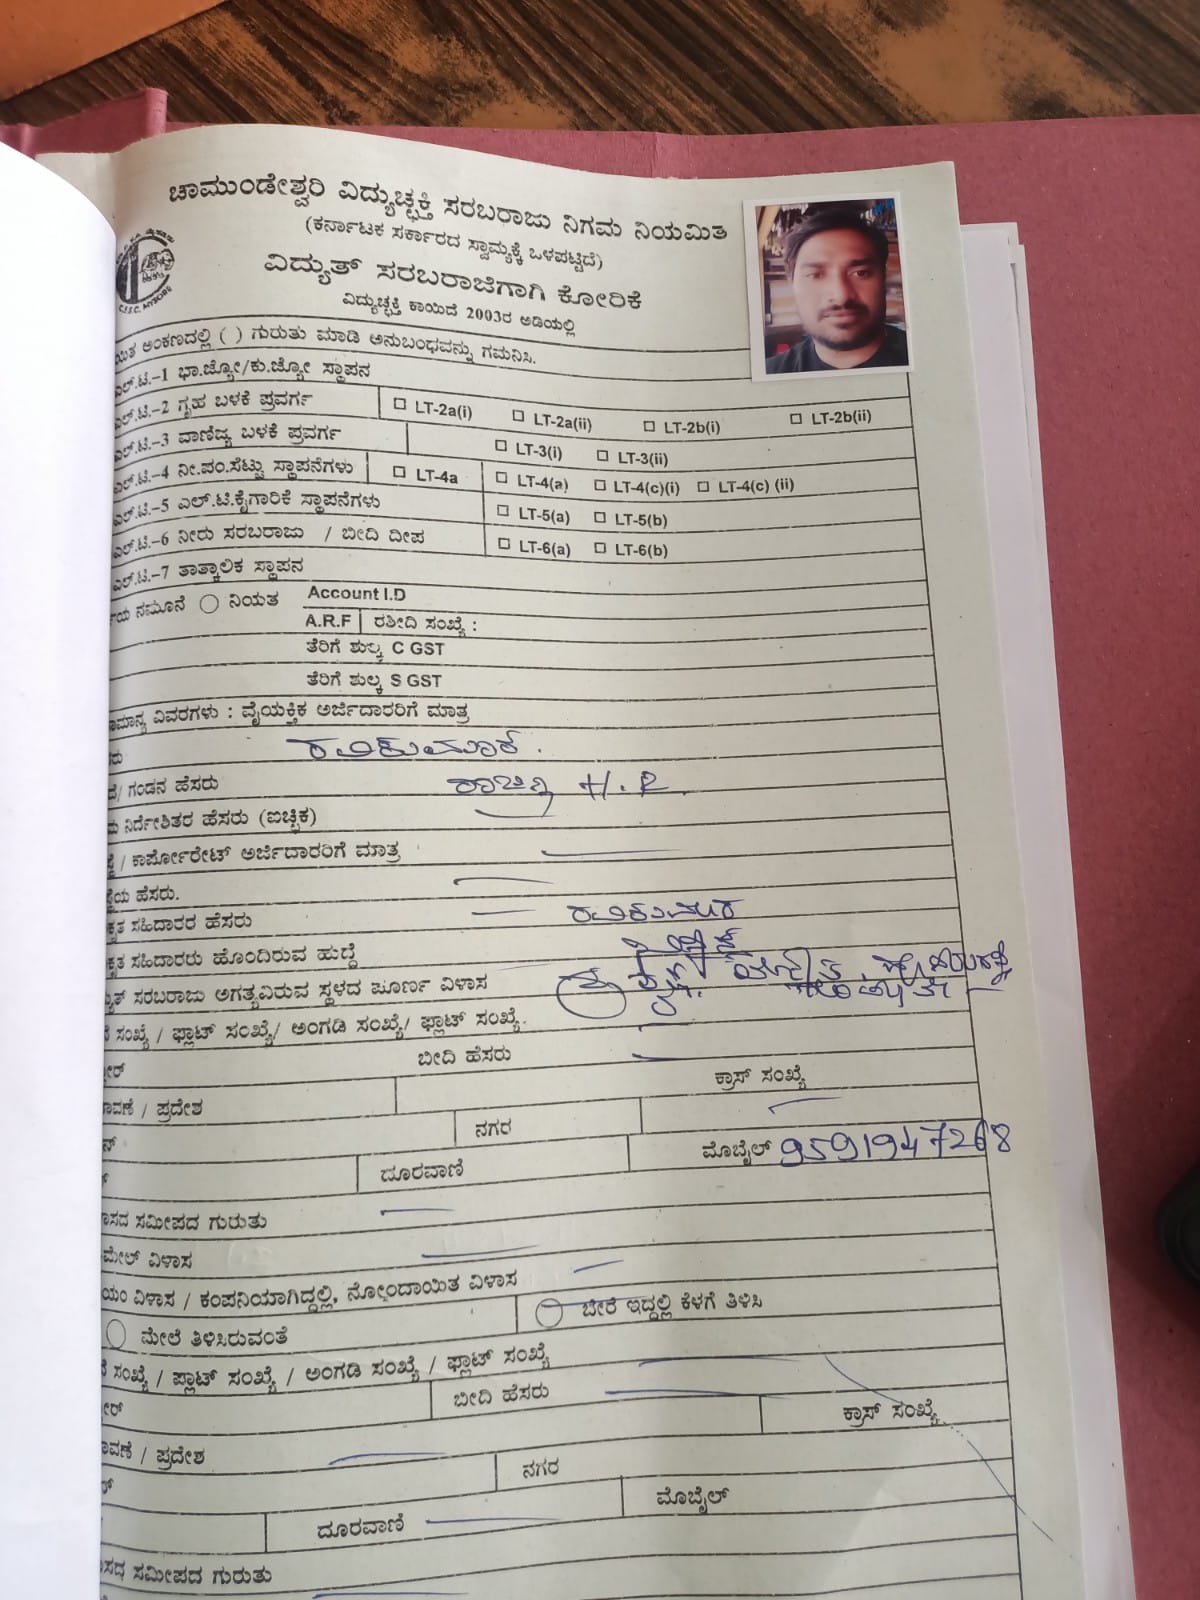 ಚಾಮುಂಡೇಶ್ವರಿ ವಿದ್ಯುಚ್ಛಕ್ತಿ ಸರಬರಾಜು ನಿಗಮ ನಿಯಮಿತ
(ಕರ್ನಾಟಕ ಸರ್ಕಾರದ ಸ್ವಾಮ್ಯಕ್ಕೆ ಒಳಪಟ್ಟಿದೆ)
ವಿದ್ಯುತ್ ಸರಬರಾಜಿಗಾಗಿ ಕೋರಿಕೆ
ವಿದ್ಯುಚ್ಛಕ್ತಿ ಕಾಯಿದೆ 2003ರ ಅಡಿಯಲ್ಲಿ
C.E.S.C. MYSORE
ಅಂಕಣದಲ್ಲಿ ( ) ಗುರುತು ಮಾಡಿ ಅನುಬಂಧವನ್ನು ಗಮನಿಸಿ.
ಎಲ್.ಟಿ.-1 ಭಾ.ಜ್ಯೋ/ಕು.ಜ್ಯೋ ಸ್ಥಾಪನ
ಎಲ್.ಟಿ.-2 ಗೃಹ ಬಳಕೆ ಪ್ರವರ್ಗ □ LT-2a(i) □ LT-2a(ii) □ LT-2b(i) □ LT-2b(ii)
ಎಲ್.ಟಿ.-3 ವಾಣಿಜ್ಯ ಬಳಕೆ ಪ್ರವರ್ಗ □ LT-3(i) □ LT-3(ii)
ಎಲ್.ಟಿ.-4 ನೀ.ಪಂ.ಸೆಟ್ಟು ಸ್ಥಾಪನೆಗಳು □ LT-4a □ LT-4(a) □ LT-4(c)(i) □ LT-4(c) (ii)
ಎಲ್.ಟಿ.-5 ಎಲ್.ಟಿ.ಕೈಗಾರಿಕೆ ಸ್ಥಾಪನೆಗಳು □ LT-5(a) □ LT-5(b)
ಎಲ್.ಟಿ.-6 ನೀರು ಸರಬರಾಜು / ಬೀದಿ ದೀಪ □ LT-6(a) □ LT-6(b)
ಎಲ್.ಟಿ.-7 ತಾತ್ಕಾಲಿಕ ಸ್ಥಾಪನ
ಯ ನಮೂನೆ ○ ನಿಯತ Account I.D
A.R.F ರಶೀದಿ ಸಂಖ್ಯೆ :
ತೆರಿಗೆ ಶುಲ್ಕ C GST
ತೆರಿಗೆ ಶುಲ್ಕ S GST
ಾಮಾನ್ಯ ವಿವರಗಳು : ವೈಯಕ್ತಿಕ ಅರ್ಜಿದಾರರಿಗೆ ಮಾತ್ರ
ರು ರವಿಕುಮಾರ್.
ದೆ/ ಗಂಡನ ಹೆಸರು ರಾಜಣ್ಣ H.R.
ದು ನಿರ್ದೇಶಿತರ ಹೆಸರು (ಐಚ್ಛಿಕ)
ಸ್ಥೆ / ಕಾರ್ಪೋರೇಟ್ ಅರ್ಜಿದಾರರಿಗೆ ಮಾತ್ರ
ಸ್ಥೆಯ ಹೆಸರು.
ಕೃತ ಸಹಿದಾರರ ಹೆಸರು ರವಿಕುಮಾರ
ಕೃತ ಸಹಿದಾರರು ಹೊಂದಿರುವ ಹುದ್ದೆ
್ಯುತ್ ಸರಬರಾಜು ಅಗತ್ಯವಿರುವ ಸ್ಥಳದ ಪೂರ್ಣ ವಿಳಾಸ
ೆ ಸಂಖ್ಯೆ / ಫ್ಲಾಟ್ ಸಂಖ್ಯೆ/ ಅಂಗಡಿ ಸಂಖ್ಯೆ/ ಫ್ಲಾಟ್ ಸಂಖ್ಯೆ.
ೋರ್ ಬೀದಿ ಹೆಸರು
ಾವಣೆ / ಪ್ರದೇಶ ಕ್ರಾಸ್ ಸಂಖ್ಯೆ
ನಗರ
ದೂರವಾಣಿ ಮೊಬೈಲ್ 9591947268
ಾಸದ ಸಮೀಪದ ಗುರುತು
ಮೇಲ್ ವಿಳಾಸ
ಯಂ ವಿಳಾಸ / ಕಂಪನಿಯಾಗಿದ್ದಲ್ಲಿ, ನೋಂದಾಯಿತ ವಿಳಾಸ
○ ಮೇಲೆ ತಿಳಿಸಿರುವಂತೆ ○ ಬೇರೆ ಇದ್ದಲ್ಲಿ ಕೆಳಗೆ ತಿಳಿಸಿ
ೆ ಸಂಖ್ಯೆ / ಪ್ಲಾಟ್ ಸಂಖ್ಯೆ / ಅಂಗಡಿ ಸಂಖ್ಯೆ / ಫ್ಲಾಟ್ ಸಂಖ್ಯೆ
ೋರ್ ಬೀದಿ ಹೆಸರು
ಾವಣೆ / ಪ್ರದೇಶ ಕ್ರಾಸ್ ಸಂಖ್ಯೆ
ನಗರ
ದೂರವಾಣಿ ಮೊಬೈಲ್
ಾಸದ ಸಮೀಪದ ಗುರುತು